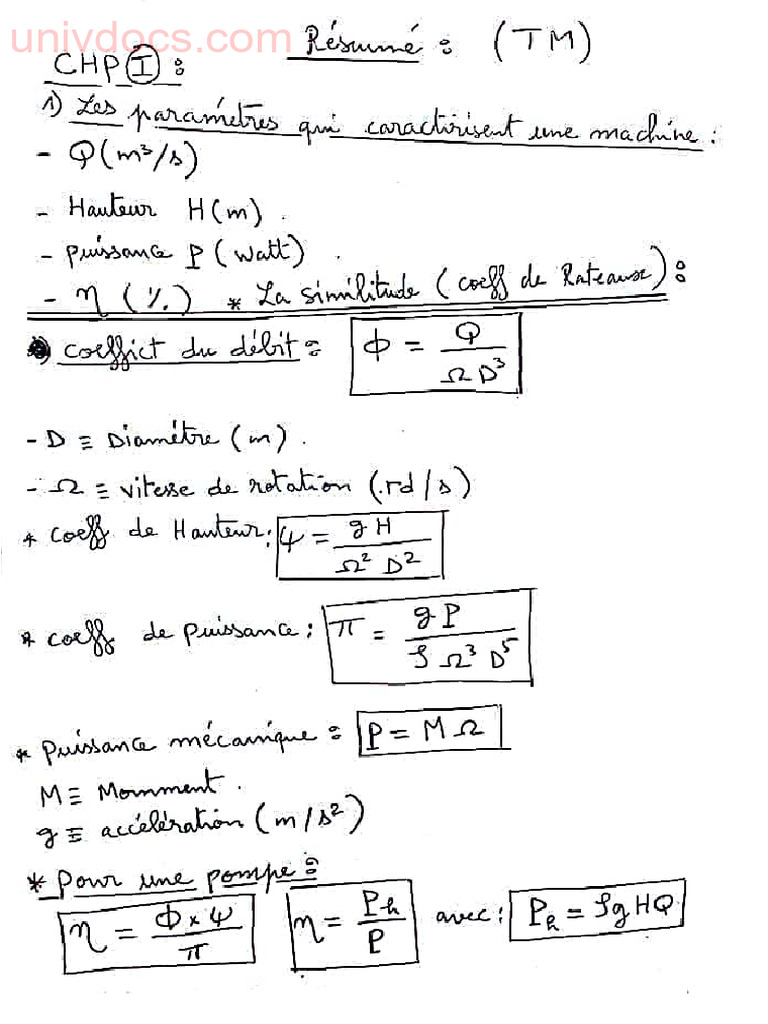 univdocs.com
Résumé : (TM)
CHP I :
1) Les paramétres qui caractérisent une machine :
- Q (m³/s)
- Hauteur H(m) .
- Puissance P (watt) .
- η (%) * La similitude (coeff de Rateause) :
coeffict du débit : Φ = Q / Ω D³
- D ≡ Diamétre (m) .
- Ω ≡ vitesse de rotation (.rd/s)
* coeff de Hauteur : Ψ = gH / Ω² D²
* coeff de puissance : π = gP / ρ Ω³ D⁵
* Puissance mécanique : P = M Ω
M ≡ Momment .
g ≡ accélération (m/s²)
* Pour une pompe :
η = Φ × Ψ / π η = Ph / P avec : Ph = ρgHQ